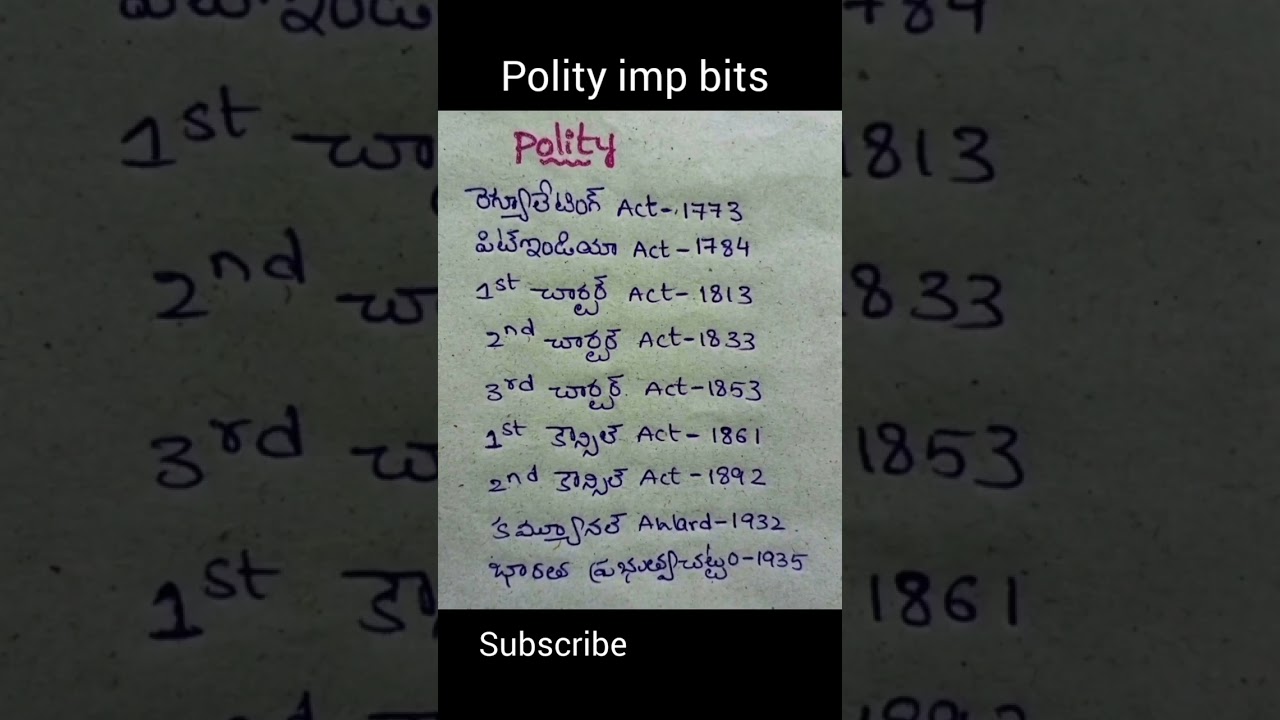 Polity imp bits
Polity
రెగ్యూలేటింగ్ Act-1773
పిట్ఇండియా Act-1784
1st చార్టర్ Act-1813
2nd చార్టర్ Act-1833
3rd చార్టర్ Act-1853
1st కౌన్సిల్ Act-1861
2nd కౌన్సిల్ Act-1892
కమ్యూనల్ Award-1932
భారత ప్రభుత్వచట్టం-1935
Subscribe